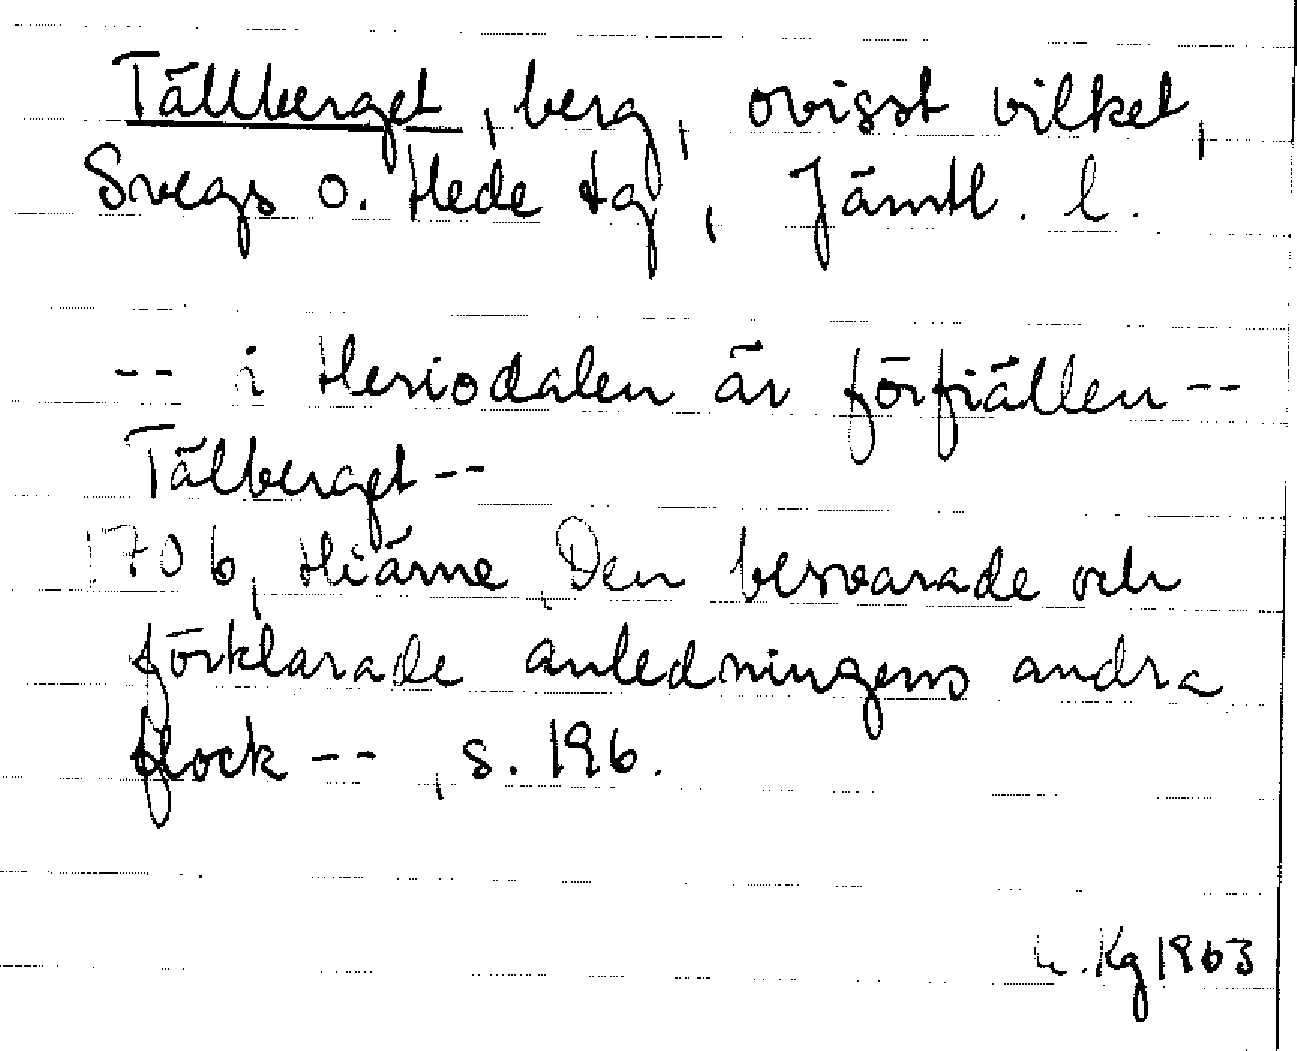 Tällberget, berg, ovisst vilket,
Svegs o. Hede tg, Jämtl. l.
-- i Heriodalen är förfiällen --
Tälberget --
1706, Hiärne, Den besvarade och
förklarade anledningens andra
flock --, s. 196.
Kg 1963